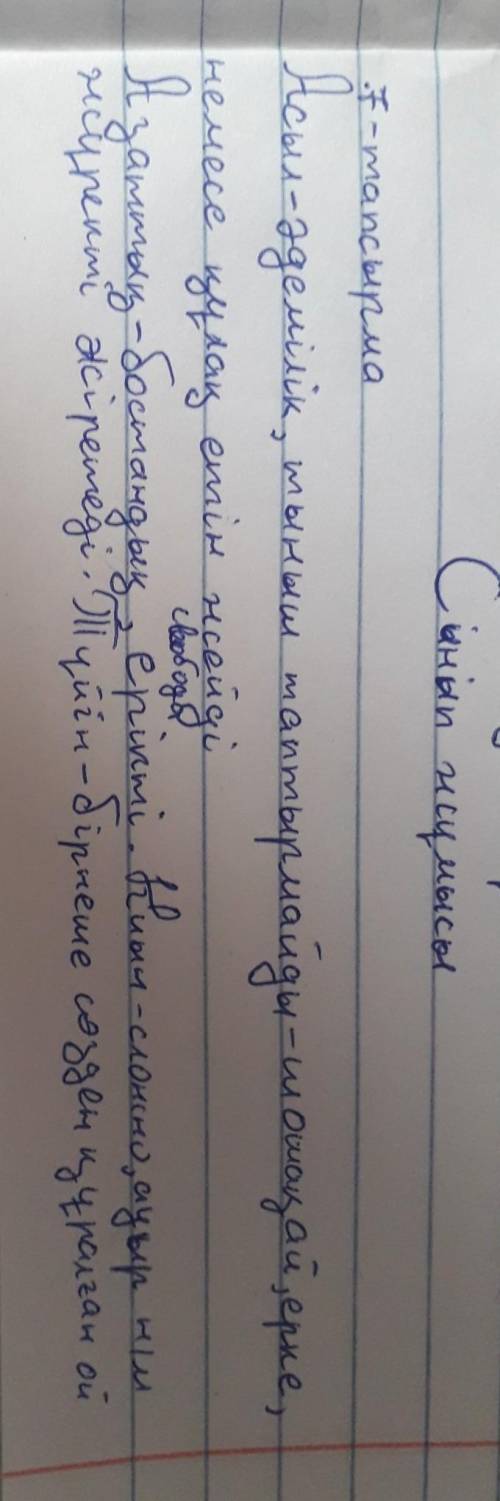 Сынып жұмысы
7-тапсырма
Асыл-әдемілік, тыныш таптырмайды-шошақай, ерке,
немесе құлақ етін жейді
свобода
Азаттық-бостандық, ерікті. Қиын-сложно, ауыр нім
жүректі жіретеді. Түйін-бірнеше сөзден құралған ой